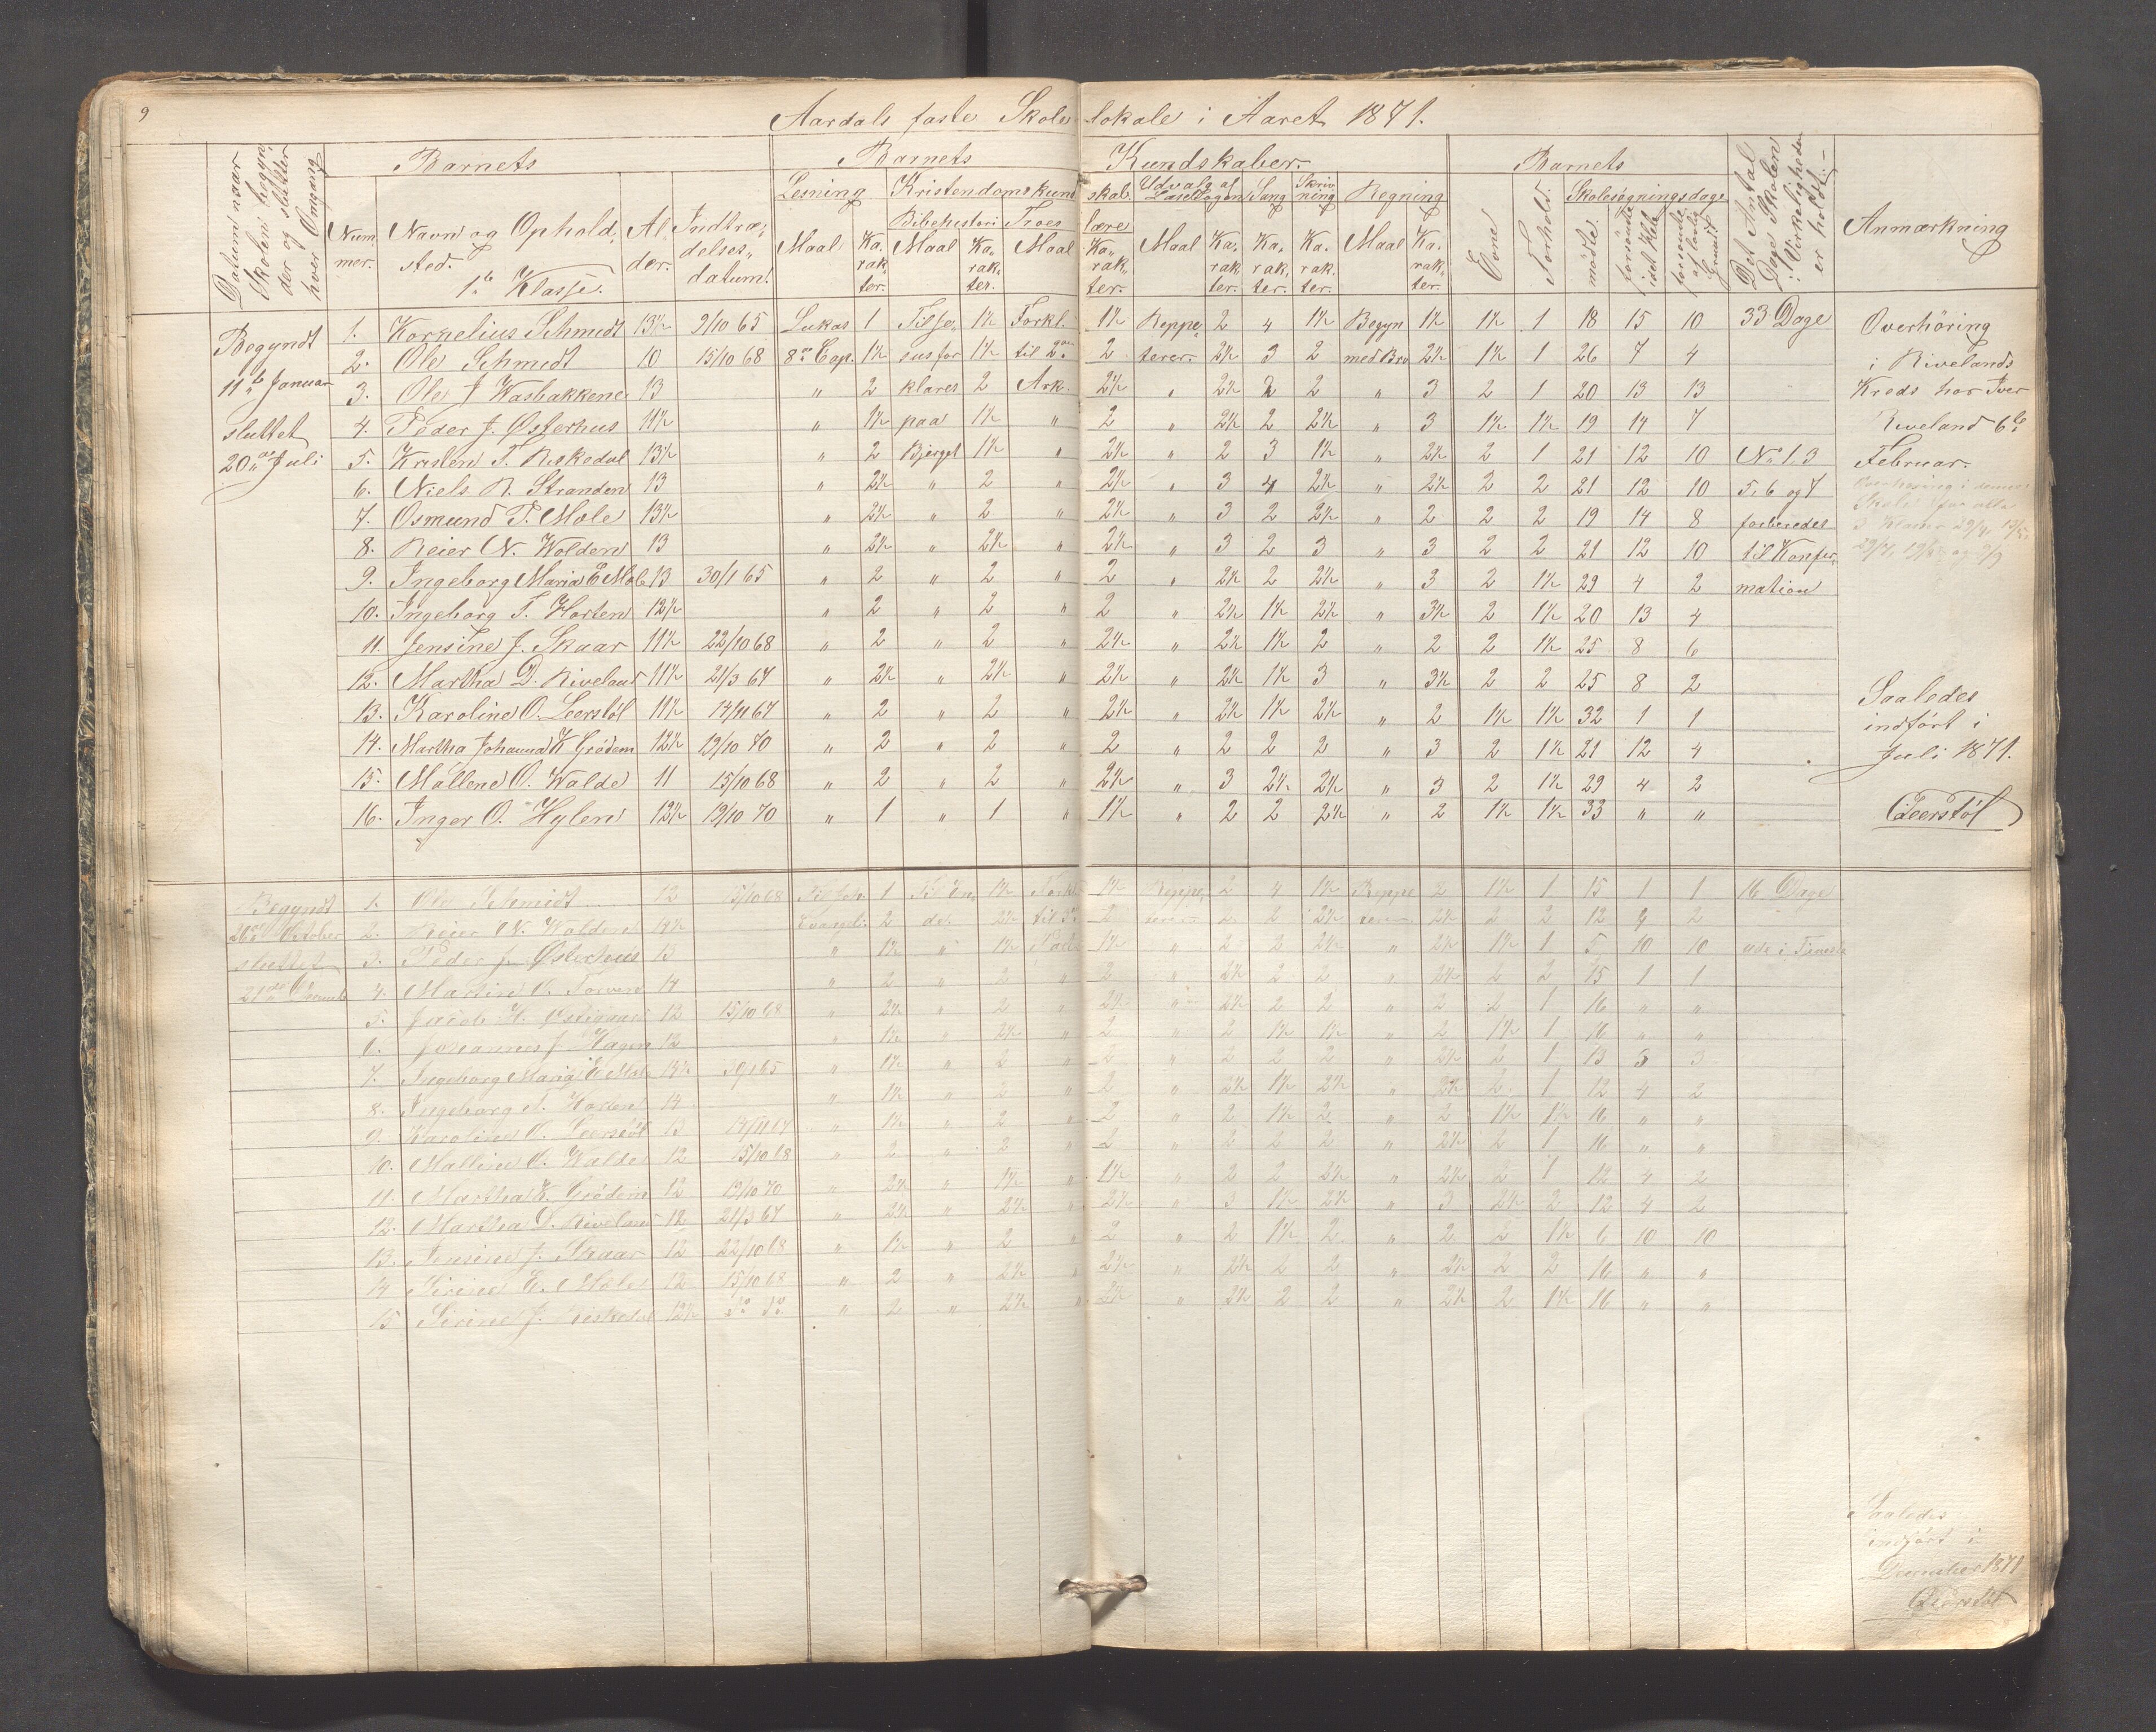 9
Aardals faste Skolelokale i Aaret 1871.
Datum naar Skolen begynder og slutter hver Omgang
Barnets
Barnets Kundskaber.
Barnets
Det Antal Dage Skolen i Virkeligheden er holdt.
Anmærkning
Nummer.
Navn og Opholdssted.
1ste Klasse.
Alder.
Indtrædelsesdatum.
Læsning
Kristendomskundskab.
Udvalg af Læsebogen
Sang
Skrivning
Regning
Evne
Forhold.
Skolesøgningsdage
Bibelhistorie
Troeslære
Maal Karakter. Maal Karakter. Maal Karakter. Maal Karakter. Karakter. Karakter. Maal Karakter.
mødte. forsømte i det Hele forsømte af lovlig Grund
Begyndt
11te Januar
sluttet
20de Juli
1. Kornelius Schmidt 13½ 9/10 65 Lukas 1 Til Je- 1½ Forkl. 1½ Reppe- 2 4 1½ Begyn 1½ 1½ 1 18 15 10 33 Dage
2. Ole Schmidt 10 15/10 68 8de Cap. 1½ sus for 1½ til 2den 2 terer. 2½ 3 2 med Brø 2½ 1½ 1 26 7 4
3. Ole J Wasbakkene 13 " 2 klares 2 Ark. 2½ " 2½ 2 2 " 3 2 1 20 13 13
4. Peder J. Østerhus 11½ " 1½ paa 1½ " 2 " 2½ 2 2½ " 3 1½ 1½ 19 14 7
5. Kristen T. Riskedal 13½ " 2 Bjerget 1½ " 2½ " 2 3 1½ " 2½ 2 1 21 12 10 No 1. 3
6. Niels R. Stranden 13 " 2½ " 2 " 2½ " 3 4 2½ " 2½ 2 2 21 12 10 5, 6 og 7
7. Osmund T. Mole 13½ " 2½ " 2 " 2½ " 3 2 2½ " 2 2 2 19 14 8 forberedes
8. Reier N. Wolden 13 " 2½ " 2½ " 2½ " 3 2 3 " 3 2 2 21 12 10 til Konfir-
9. Ingeborg Maria E Mole 13 30/1 65 " 2 " 2 " 2 " 2½ 2 2½ " 3 2 1½ 29 4 2 mation
10. Ingeborg T. Horten 12½ " 2 " 2 " 2 " 2½ 1½ 2½ " 3½ 2 1½ 20 13 4
11. Jensine J. Skaar 11½ 22/10 68 " 2 " 2 " 2½ " 2½ 1½ 2 " 2 2 1½ 25 8 6
12. Martha D. Riveland 11½ 21/3 67 " 2½ " 2½ " 2½ " 2½ 1½ 3 " 3½ 2 2 25 8 2
13. Karoline O. Leerstøl 11½ 14/11 67 " 2 " 2 " 2½ " 2½ 1½ 2½ " 2 1½ 1½ 32 1 1
14. Martha Johanna K Grødem 12½ 19/10 70 " 2 " 2 " 2 " 2 2 2 " 3 2 1½ 21 12 4
15. Mallene O. Walde 11 15/10 68 " 2 " 2 " 2½ " 3 2½ 2½ " 3 2 1½ 29 4 2
16. Inger O. Hylen 12½ 19/10 70 " 1 " 1 " 1½ " 2 2 2½ " 2 1½ 1½ 33 " "
Overhöring
i Rivelands
Kreds hos Iver
Riveland 6te
Februar.
Saaledes
indført i
Juli 1871.
Leerstøl
Begyndt
26de October
sluttet
1. Ole Schmidt 12 15/10 68 1 1½ 1½ Reppe- 2 4 1½ Reppe 2 1½ 1 15 1 1 16 Dage
2. Reier N. Wolden Evangeli. 2 2½ 2 terer. 2 2 2½ terer. 2½ 2 2 12 4 2
3. Peder J. Østerhus 13 " 1½ " 1½ 1½ " 2 2 2½ " 2½ 1½ 1 5 10 10
4. 14 " 2 " 2 " 2 " 2½ 2 2 " 2½ 2 2 15 1 1
5. Jacob H. 12 15/10 68 " 2½ " 2 " 2½ " 2½ 2 2 " 2 2 1 16 " "
6. Johannes J Hagen 12 " 1½ " 2½ " 2 " 2 1½ 1½ " 2 1½ 1 16 " "
7. Ingeborg Maria E Mole 30/1 65 " 1½ " 2 " 2 " 2 2 2 " 2½ 2 1 13 3 3
8. Ingeborg T. Horten 14 " 1½ " 2 " 2 " 2½ 1½ 2½ " 2½ 2 1 12 4 2
9. Karoline O. Leerstøl 13 14/11 67 " 1½ " 2 " 2 " 2 1½ 2 " 2 1½ 1½ 16 " "
10. Malline O. Walde 12 15/10 68 " 2 " 2 " 2 " 2 2 2 " 2½ 2 1 16 " "
11. Martha K. Grødem 12 19/10 70 " 2½ " 1½ " 1½ " 2 2 2½ " 2½ 2 1 12 4 2
12. Martha D. Riveland 12 21/3 67 " 2½ " 2½ " 2½ " 3 1½ 2½ " 3 2½ 2 12 4 2
13. Jensine J. Skaar 12 22/10 68 " 1½ " 2 " 2 " 2 1½ 2 " 2 2 1½ 6 10 10
14 Sirine E. Mole 12 15/10 68 " 2 " 2½ " 2½ " 2½ 2 2 " 2½ 2 2 16 " "
15 Sirine J. Riskedal 12½ " 2 " 2½ " 2½ " 2½ 2 2 " 2½ 2 1½ 16 " "
Saaledes
indført i
December 1871
Leerstøl